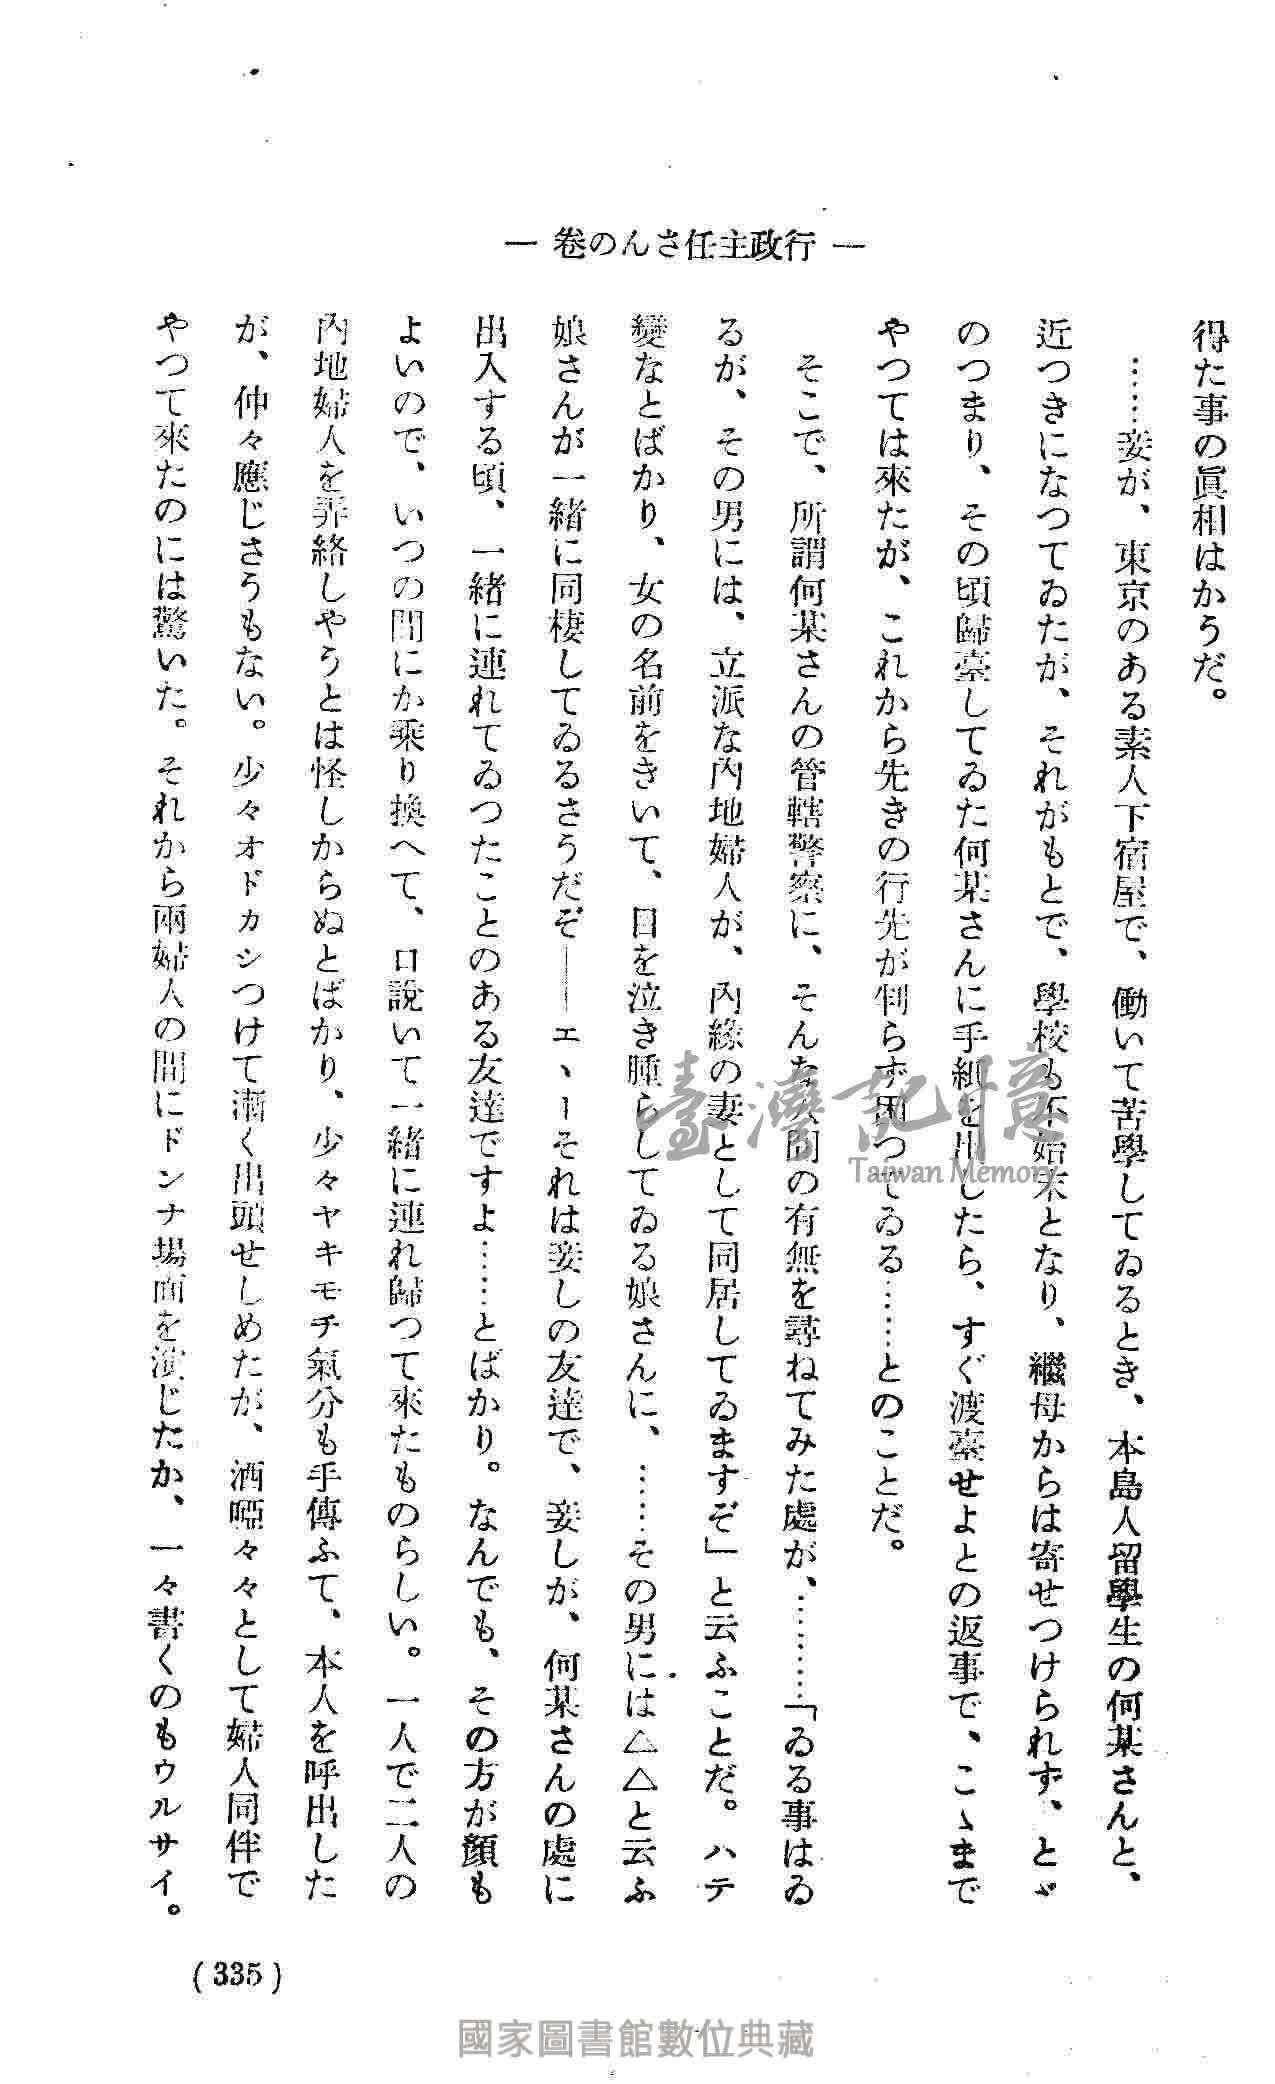 — 卷のんさ任主政行 —
得た事の眞相はかうだ。
……妾が、東京のある素人下宿屋で、働いて苦學してゐるとき、本島人留學生の何某さんと、
近つきになつてゐたが、それがもとで、學校も不始末となり、繼母からは寄せつけられず、とゞ
のつまり、その頃歸臺してゐた何某さんに手紙を出したら、すぐ渡臺せよとの返事で、こゝまで
やつては來たが、これから先きの行先が判らず困つてゐる……とのことだ。
そこで、所謂何某さんの管轄警察に、そんな人間の有無を尋ねてみた處が、…………「ゐる事はゐ
るが、その男には、立派な內地婦人が、內緣の妻として同居してゐますぞ」と云ふことだ。ハテ
變なとばかり、女の名前をきいて、目を泣き腫らしてゐる娘さんに、……その男には△△と云ふ
娘さんが一緒に同棲してゐるさうだぞ――エヽーそれは妾しの友達で、妾しが、何某さんの處に
出入する頃、一緒に連れてゐつたことのある友達ですよ……とばかり。なんでも、その方が顏も
よいので、いつの間にか乘り換へて、口說いて一緒に連れ歸つて來たものらしい。一人で二人の
內地婦人を弄絡しやうとは怪しからぬとばかり、少々ヤキモチ氣分も手傳ふて、本人を呼出した
が、仲々應じさうもない。少々オドカシつけて漸く出頭せしめたが、洒啞々々として婦人同伴で
やつて來たのには驚いた。それから兩婦人の間にドンナ場面を演じたか、一々書くのもウルサイ。
(335)
臺灣記憶
Taiwan Memory
國家圖書館數位典藏